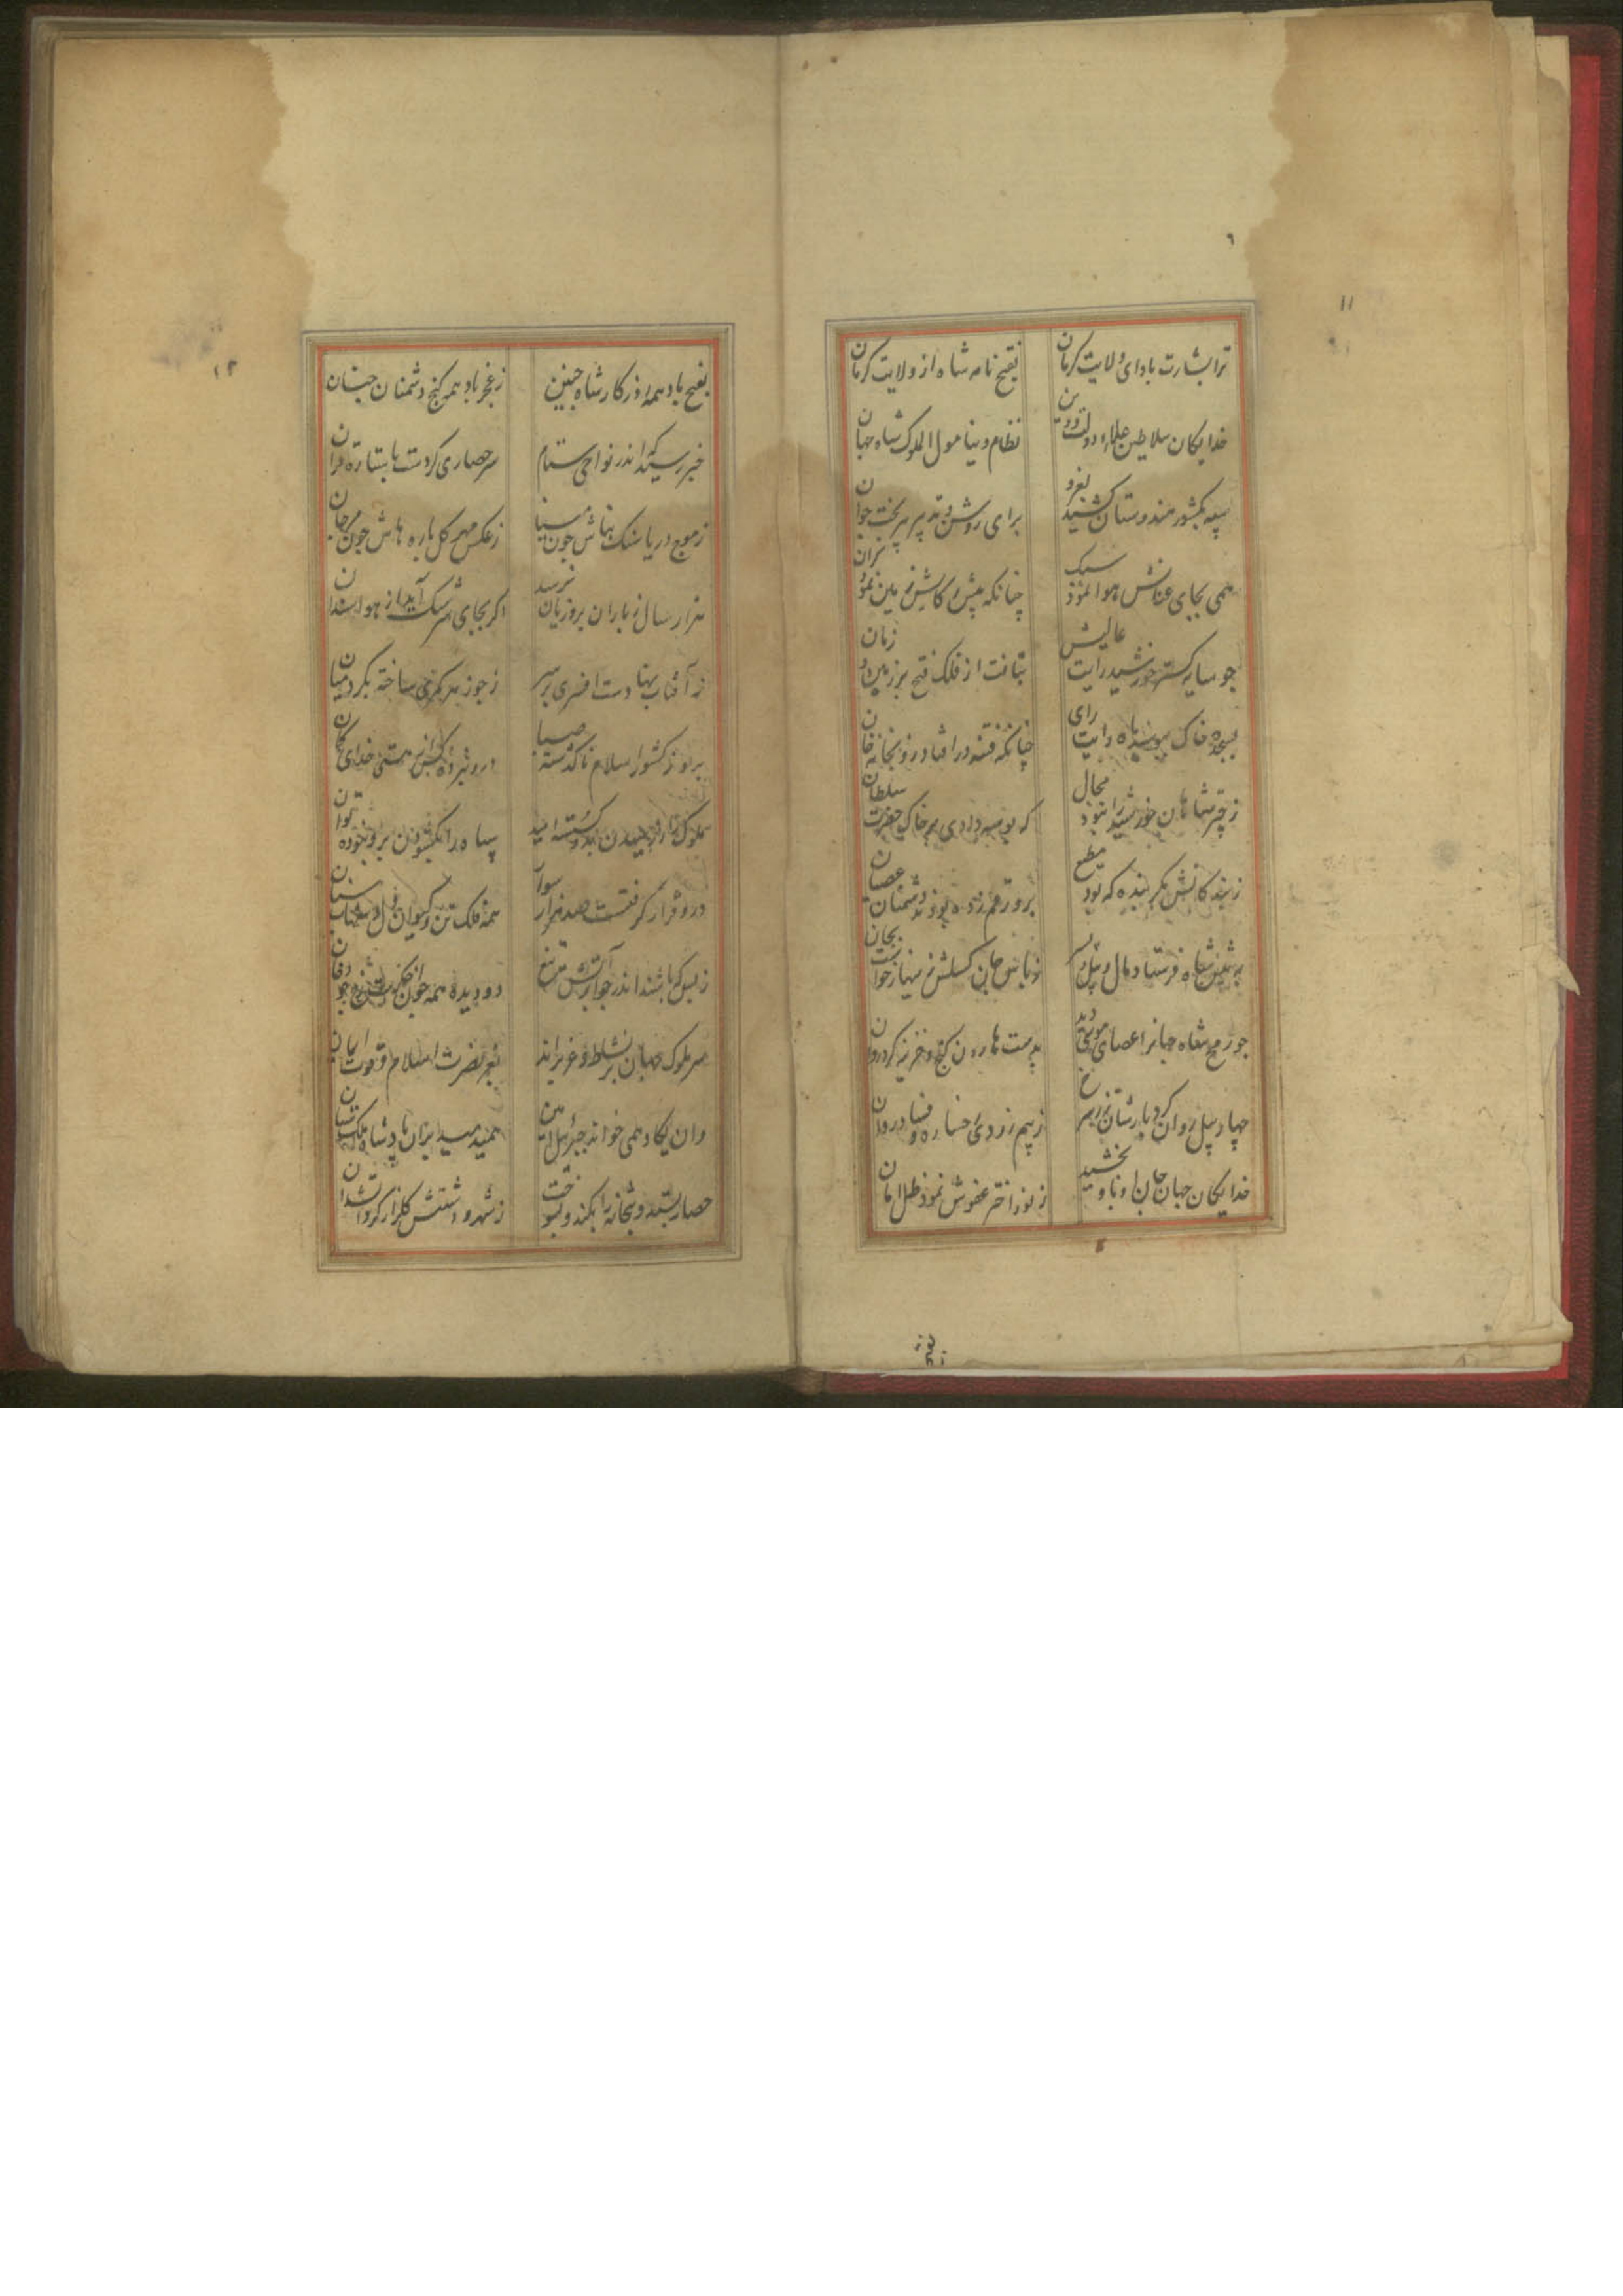 ٦
١١
ترا بشارت باد ای ولایت کرمان
بفتح نامه شاه از ولایت کرمان
خدایکان سلاطین علاء دولت ودین
نظام دنیا مولی الملوک شاه جهان
سپه بکشور هندوستان کشید
برای روشن وتدبیر پیر بخت جوان
همی بجای عنانش هوا نمود سبک
چنانکه پیش رکابش زمین نمود کران
جو سایه کستر خورشید رایت عالیش
بتافت از فلک فتح بر زمین و زمان
بسجده خاک ببوسید رای
چنانکه فتنه در افتاد در
ز چتر شاهان خورشید را نبود مجال
که بوسه دادی بر خاک حضرت سلطان
ز بندکانش مکر بنده که بود مطیع
برو رقم زده بودند دشمنان عصیان
به پیش شاه فرستاد مال وپیل وپسر
بجان
جو رمح شاه جهانرا عصای موسی دید
بدست هارون کنج وخزینه کرد روان
چهار پیل روان کرد بارشان زر سرخ
ز بیم زردی رخساره و
خدایکان جهان جان او باو بخشید
ز نور اختر عفوش نمود ظل امان
١٢
بفتح باد همه روز کار شاه جنین
ز فخر باد همه کنج دشمنان جنان
خبر رسید که اندر نواحی
حصاری کردست با ستاره قران
ز موج دریا سنک بناش جون مینا
ز عکس مهر کل باره هاش جون مرجان
هزار سال ز باران برو زیان نرسد
اکر بجای سرشک آید از هوا سندان
ز آفتاب نهادست افسری بر سر
ز جوز هر کمری ساخته بکرد میان
برو ز کشور اسلام ناکذشته صبا
درو نبرده کس از هستی خدای کمان
ملوک را ز رسیدن بدو کسسته امید
سپاه را بکشودن برو نبوده توان
درو قرار کرفتست صد هزار سوار
همه فلک تن وکیوان دل وشهاب سنان
ز بس که باشند اندر جوار آتش تیغ
دو دیده همه
سر ملوک جهان بر نشاط غزو براند
بعز نصرت اسلام وقوت ایمان
وان یکاد همی خواند جبرئیل امین
همیدمید بران پادشاه ملک ستان
حصار بستد وبتخانه را بکند وبسوخت
ز شهر و دشتش کلزار کرد